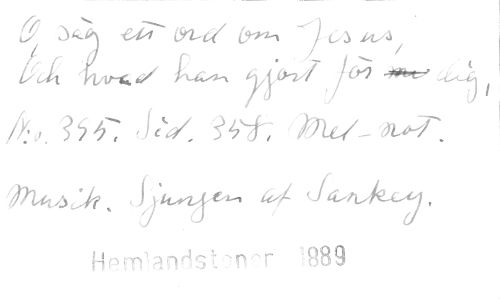 O, säg ett ord om Jesus,
Och hvad han gjort för dig,
No. 395. Sid. 358. Mel-not.
Musik. Sjungen af Sankey.
Hemlandstoner 1889